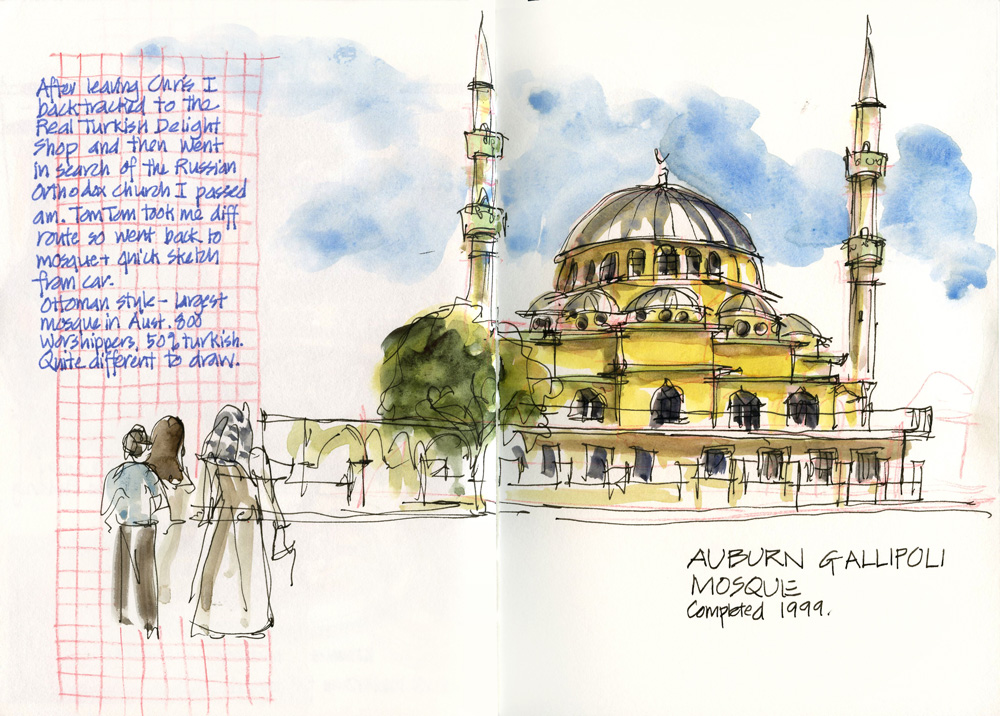 After leaving Chris I
backtracked to the
Real Turkish Delight
Shop and then went
in search of the Russian
Orthodox church I passed
am. TomTom took me diff
route so went back to
mosque + quick sketch
from car.
Ottoman style - largest
mosque in Aust. 800
worshippers. 50% turkish.
Quite different to draw.
AUBURN GALLIPOLI
MOSQUE
Completed 1999.